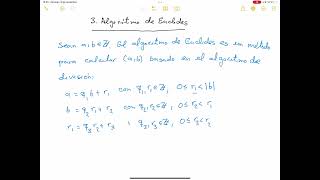 3. Algoritmo de Euclides
Sean a,b ∈ ℤ. El algoritmo de Euclides es un método
para calcular (a,b) basado en el algoritmo de
división:
a = q₁b + r₁ con q₁,r₁ ∈ ℤ, 0 ≤ r₁ < |b|
b = q₂r₁ + r₂ con q₂,r₂ ∈ ℤ, 0 ≤ r₂ < r₁
r₁ = q₃r₂ + r₃ , q₃,r₃ ∈ ℤ, 0 ≤ r₃ < r₂